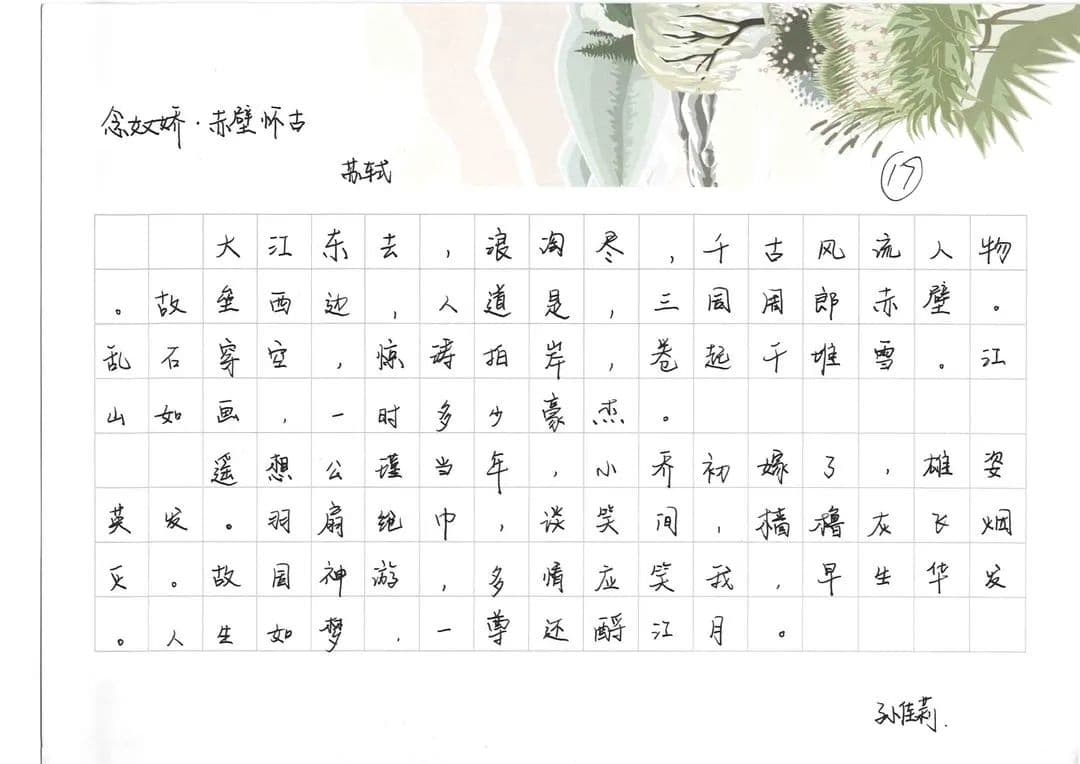 念奴娇·赤壁怀古
苏轼
17
大江东去，浪淘尽，千古风流人物
。故垒西边，人道是，三国周郎赤壁。
乱石穿空，惊涛拍岸，卷起千堆雪。江
山如画，一时多少豪杰。
遥想公瑾当年，小乔初嫁了，雄姿
英发。羽扇纶巾，谈笑间，樯橹灰飞烟
灭。故国神游，多情应笑我，早生华发
。人生如梦，一尊还酹江月。
孙佳莉.